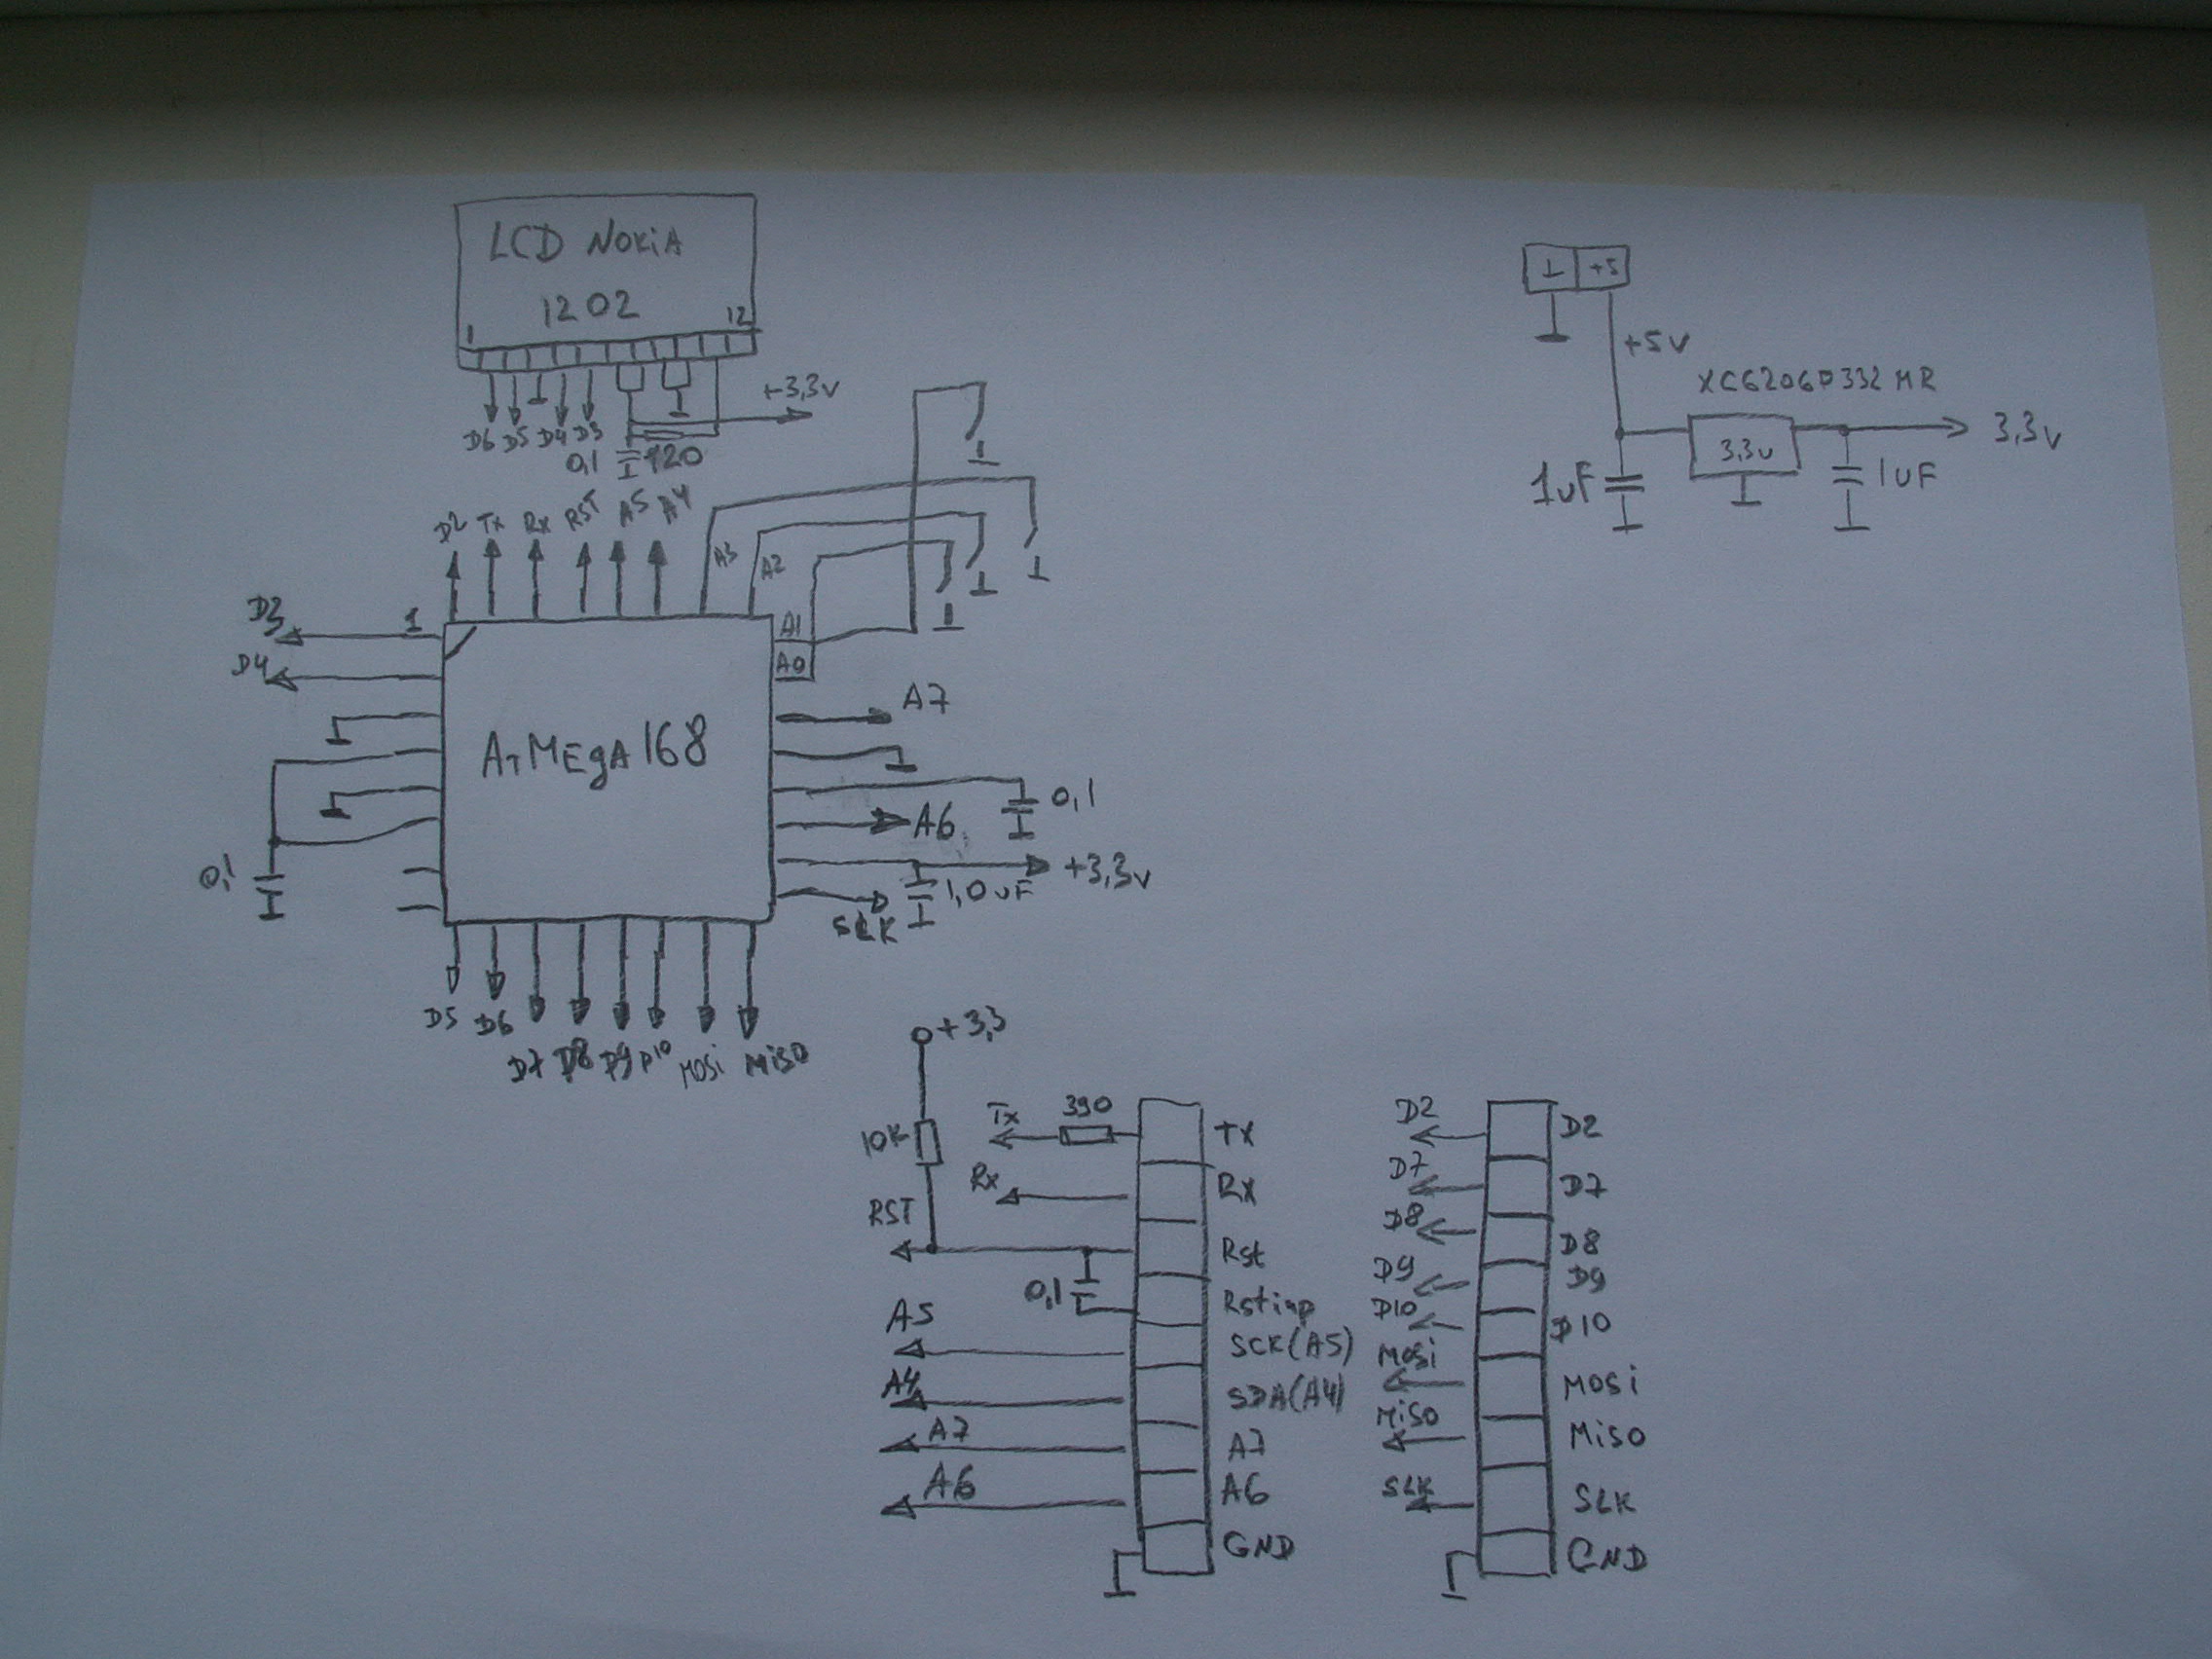 LCD NOKiA
1202
1 12
D6 D5 D4 D3
+3,3v
0,1 120
D2 Tx Rx RST A5 A4
A3 A2
D3 1
D4
A1
A0
A7
ATMEgA168
0,1
A6
0,1
+3,3v
1,0uF
SLK
D5 D6 D7 D8 D9 D10 MOSi MiSO
+5
+5v
XC6206P332MR
3,3v
3,3v
1uF
1uF
+3,3
10K
RST
Tx 390 Tx
Rx Rx
Rst
0,1 Rstinp
A5 SCK(A5)
A4 SDA(A4)
A7 A7
A6 A6
GND
D2 D2
D7 D7
D8 D8
D9 D9
D10 D10
MOSi MOSi
MiSO MiSO
SLK SLK
GND